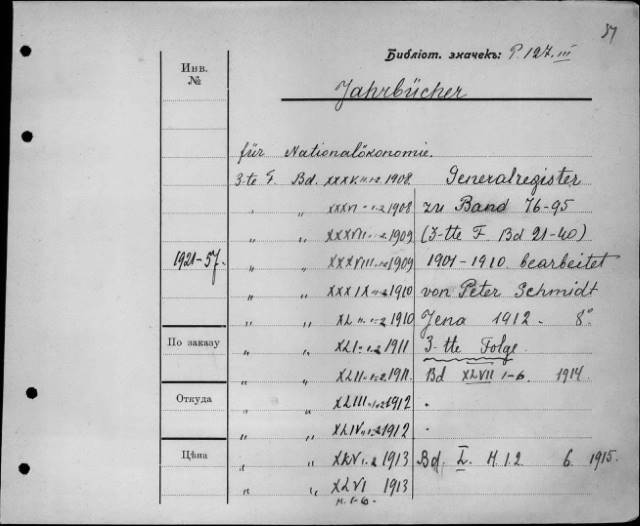 57
Библіот. значекъ: P. 127. III
Инв. №
Jahrbücher
für Nationalökonomie.
3-te F. Bd. XXXV H. 1-2 1908 Generalregister
" " XXXVI H. 1-2 1908 zu Band 76-95
" " XXXVII H. 1-2 1909 (3-tte F. Bd 21-40)
1921-57. " " XXXVIII H. 1-2 1909 1901-1910 bearbeitet
" " XXXIX H. 1-2 1910 von Peter Schmidt
" " XL H. 1-2 1910 Jena 1912 - 8°
По заказу " " XLI 1-2 1911 3-tte Folge.
" " XLII 1-2 1911. Bd XLVII 1-6. 1914
Откуда " " XLIII 1-2 1912 "
" " XLIV 1-2 1912 "
Цѣна " " XLV 1-2 1913 Bd. L. H. 1.2 6. 1915.
" " XLVI 1913
H. 1-6.